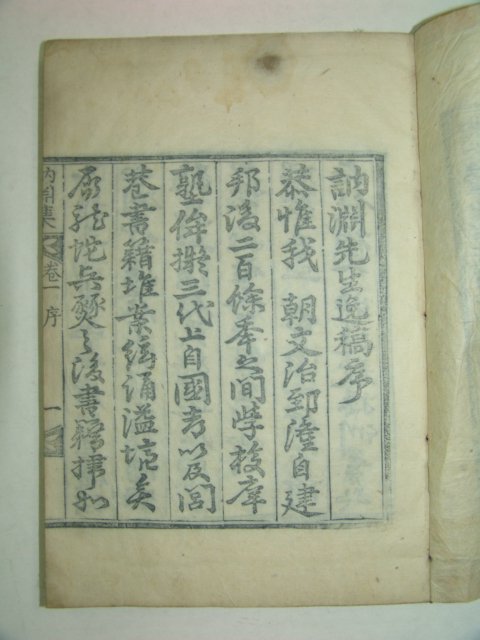 訥淵先生逸稿序
恭惟我 朝文治郅隆自建
邦後二百餘秊之間學校庠
塾侔擬三代上自國以及閭
巷書籍堆案絃誦溢境矣
龍蛇兵燹之後書籍掃如
訥淵集 卷一 序 一